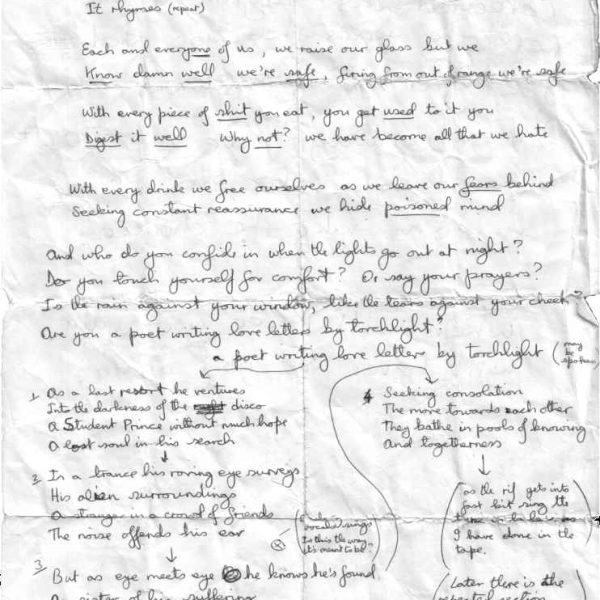 It rhymes (repeat)
Each and everyone of us, we raise our glass but we
Know damn well we're safe, firing from out of range we're safe
With every piece of shit you eat, you get used to it you
Digest it well Why not? we have become all that we hate
With every drink we free ourselves as we leave our fears behind
Seeking constant reassurance we hide poisoned mind
And who do you confide in when the lights go out at night?
Do you touch yourself for comfort? Or say your prayers?
Is the rain against your window, like the tears against your cheek?
Are you a poet writing love letters by torchlight?
a poet writing love letters by torchlight (may be spoken)
1. As a last resort he ventures
Into the darkness of the disco
A Student Prince without much hope
A lost soul in his search
2 In a trance his roving eye surveys
His alien surroundings
A stranger in a crowd of friends
The noise offends his ear
(
vocals sings
Is this the way
it's meant to be")
3 But as eye meets eye he knows he's found
sister of his suffering
4 Seeking consolation
The move towards each other
They bathe in pools of knowing
And togetherness
(as the rif gets into
fast bit sing the
I have done in the
tape.
(Later there is the
repeated section